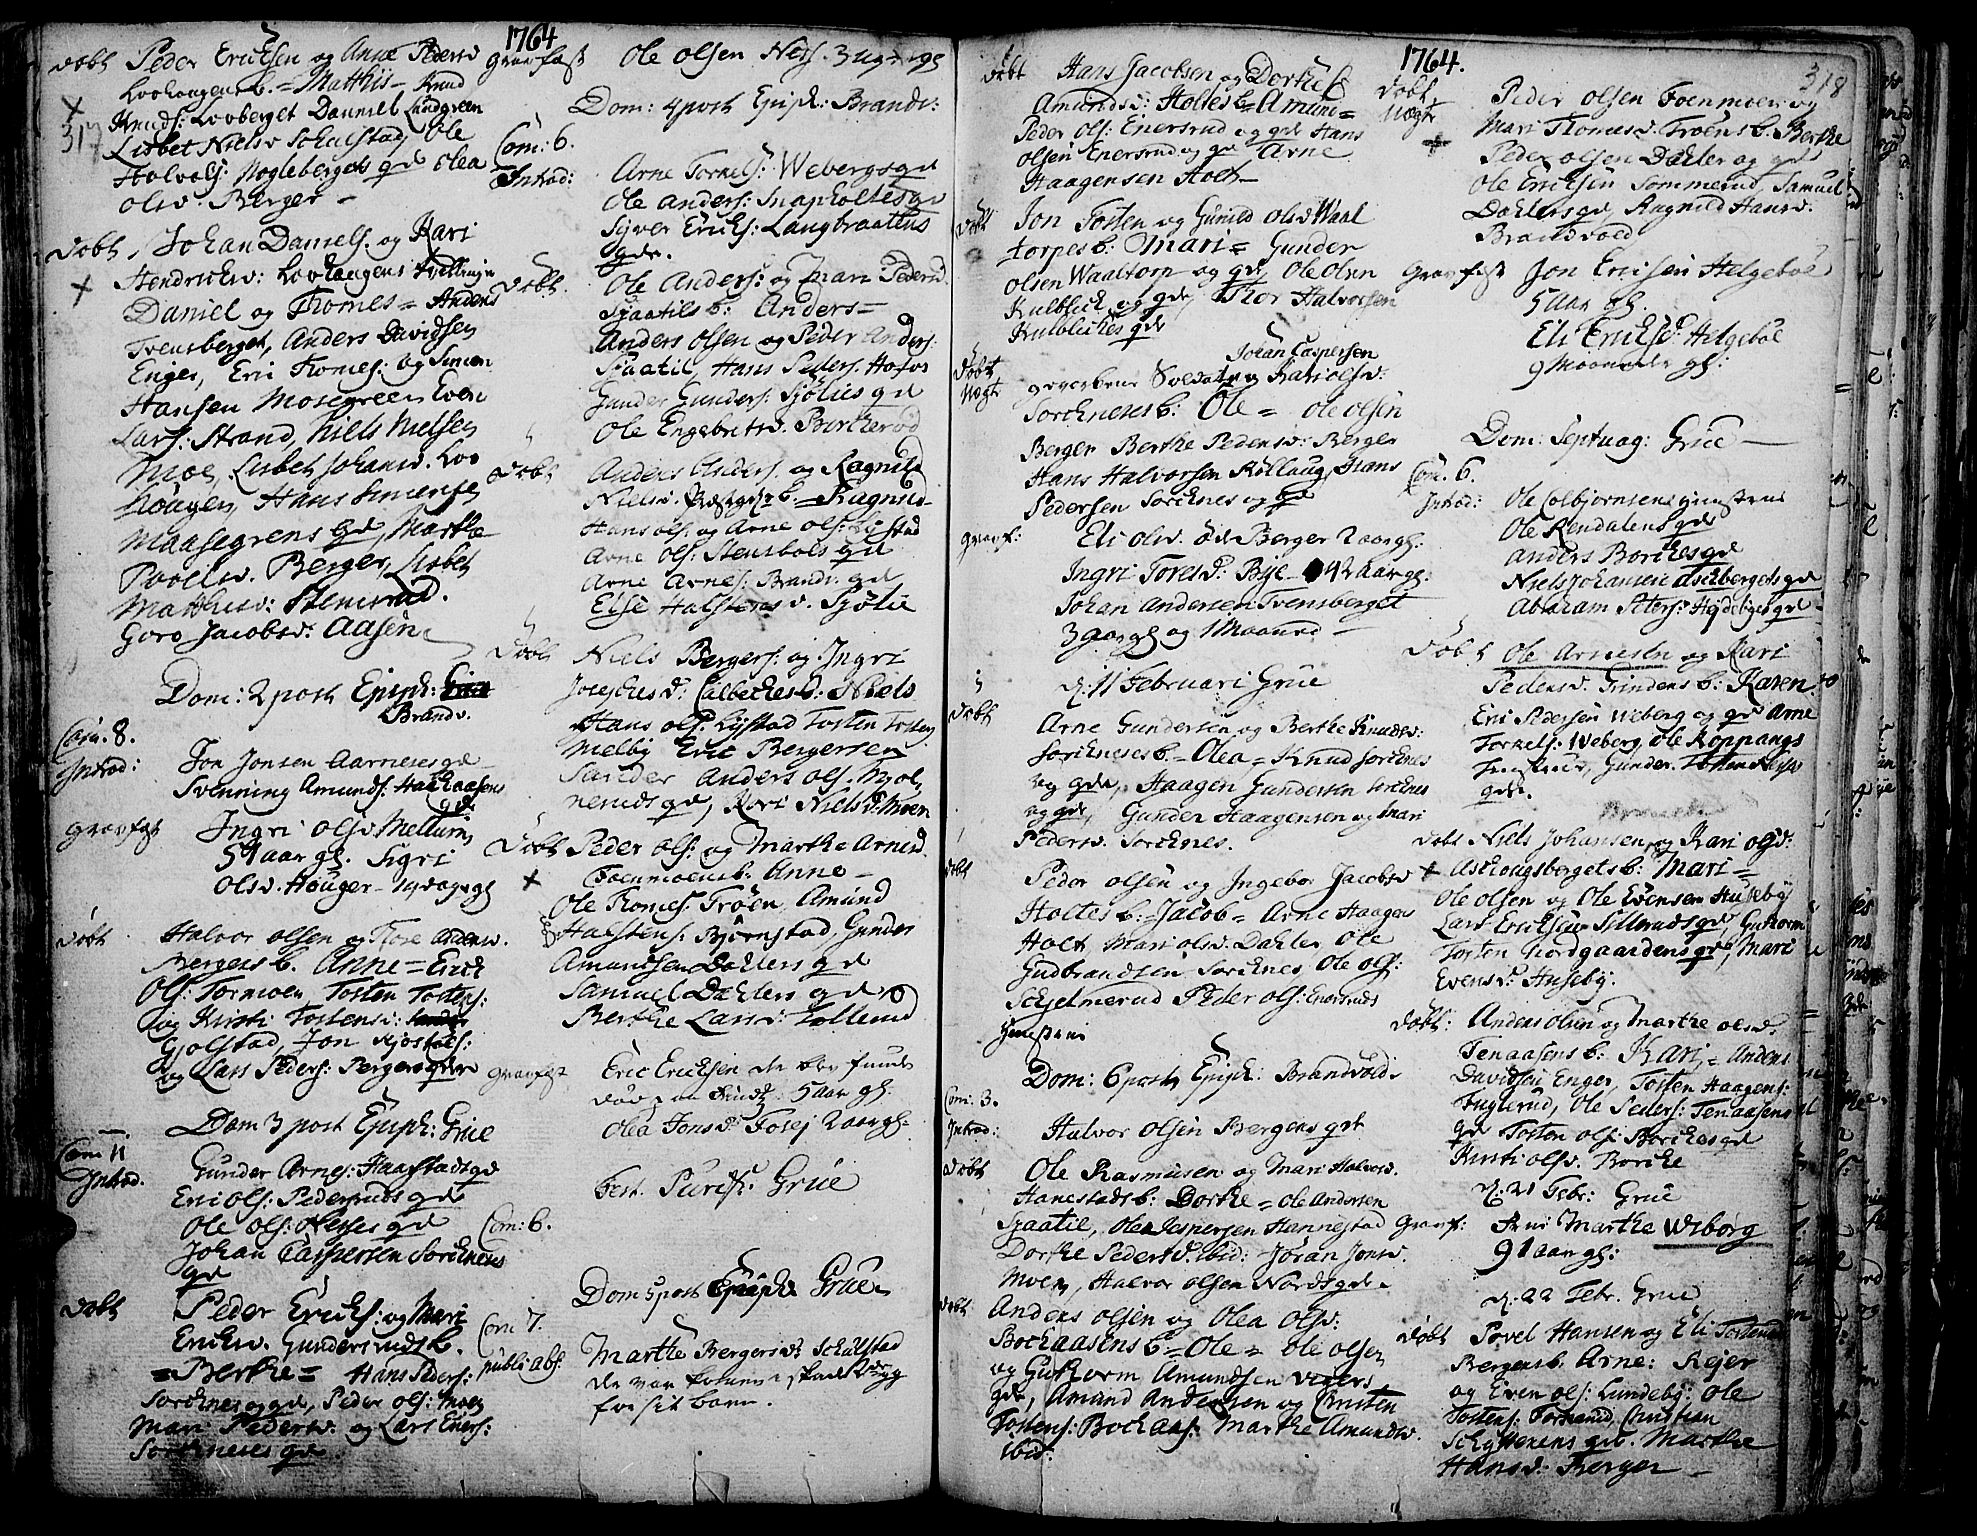 1764
døbt Peder Ericksen og Anne Peders
Lovhaugens b. = Matthis – Knud
Knuds: Lovberget Danniel Lindgreen
317
Lisbet Nielsd Schulstad, Ole
Halvols: Nogleberget gd Olea
Olsd. Berger –
døbt, Johan Daniels. og Kari
Hendrichsd: Lovhaugens tvillinger
Daniel og Thomes = Anders
Tvensberget, Anders Davidsen
Enger, Eric Thomes: og Simen
Hansen Mosegreen Even
Lars: Strand, Niels Nielsen
Moe, Lisbet Johansd. Lov
hougen, Hans Simensen
Maasegrens gd, Marthe
Povelsd. Berger, Lisbet
Matthisd: Stemsrud.
Goro Jacobsd: Aasen
Dom: 2 post Epiph:
Brandv.
Com. 8.
Introd: Jon Jonsen Aarneses gd
Svenning Amunds: Hachaasens
gd
gravfæst Ingri Olsd Mellum
54 aar gl. Sigri
Olsd. Houger – 14 dage gl
døbt Halvor Olsen og Tore Andersd.
Bergers b. Anne = Erick
Ols: Tormoen, Tosten Tostens:
og Kirsti Tostensd:
Gjølstad, Jon Kjøstels:
og Lars Peders: Berger gde
Dom 3 post Epiph: Grue
Com 11
Introd. Gunder Arnes: Haarstads gd
Eric Ols: Pedersruds gd
Ole Ols: Nesses gd
Johan Caspersen Sorcknes
gd
døbt Peder Ericks: og Mari
Ericksd. Gundersruds b.
= Berthe = Hans Peders:
Sorcknes og gd, Peder Ols: Moen
Mari Pedersd. og Lars Eners:
Sorckneses gd.
gravfæst Ole Olsen Ness. 3 uger gl
Dom: 4 post Epiph: Brandv:
Com: 6.
Introd: Arne Torkels: Webergs gd
Ole Anders: Snapholtes gd
Syver Ericks: Langbraatens
gde.
døbt. Ole Anders: og Mari Pedersd.
Spaatils b: Anders –
Anders Olsen og Peder Anders:
Spaatil, Hans Peders: Hofos
Gunder Gunders: Sjølies gd
Ole Engebretsd. Borcherud
døbt Anders Anders. og Ragnild
Nielsd. Præstgrs b. = Ragnild –
Hans Ols. og Arne Ols: Liestad
Arne Ols: Stensbøls gd
Arne Arnes: Brandv. gd
Else Halstensd. Sjølie
døbt Niels Bergers: og Ingri
Josephsd: Calbechesb: Niels
Hans Ols: Lystad Tosten Tosten
Melby Eric Bergersen
Sander Anders Ols. Hjol,
neruds gd, Kari Nielsd. Moen
døbt Peder Ols: og Marthe Arnesd.
Foenmoens b. Anne –
Ole Thomes. Trøen, Amund
Halstens: Bjørnstad, Gunder
Amundsen Dahlers gd
Samuel Dahlers gd, og
Berthe Larsd. Tollerud
gravfæst Eric Ericksen der blev funde
død 5 aar gl:
Olea Jonsd: Fosej 2 aar gl:
Fest. Purif: Grue
Com: 6.
Dom 5 post Epiph: Grue
Com: 7.
publ: abs: Marthe Bergersd: Schulstad
de var kommen i skade
for sit barn.
1764.
318
døbt Hans Jacobsen og Dorthe
Amundsd: Holtes b = Amund =
Peder Ols: Enersrud og gd Hans
Olsen Enersrud og gd Arne
Haagensen Holt –
døbt Jon Tosten og Gunild Olsd Waal
torpes b. Mari = Gunder
Olsen Waaltorp og gd, Ole Olsen
Kulblick og gd, Thor Halvorsen
Kulblickes gd
døbt
uægte
Johan Caspersen
gevorbene Soldat og Kari Olsd:
Sorckneses b: Ole = Ole Olsen
Berger Berthe Pedersd: Berger
Hans Halvorsen Rollaug, Hans
Pedersen Sorcknes og gd
gravf: Eli Olsd. Berger 2 aar gl:
Ingri Toresd: Bye 42 aar gl:
Johan Andersen Tvensberget
3 aar gl og 1 Maaned –
d: 11 Februari Grue
døbt Arne Gundersen og Berthe Knudsd:
Sorckneses b. = Olea = Knud Sorcknes
og gde, Haagen Gundersen Sorcknes
og gde, Gunder Haagensen og Mari
Pedersd. Sorcknes.
døbt Peder Olsen og Ingebor Jacobsd
Holtes b: = Jacob = Arne Haagen
Holt Mari Olsd. Dahler, Ole
Gudbrandsen Sorcknes, Ole Ols:
Schjelmerud Peder Ols: Enersruds
Dom: 6 post Epiph: Brandvold.
Com: 3.
Introd: Halvor Olsen Bergers gd
døbt Ole Rasmusen og Mari Halvorsd.
Hanestads b: Dorthe = Ole Andersen
Spaatil, Ole Jespersen Hannestad
Dorthe Pedersd: ibid: Jøran Jonsd.
Moen, Halvor Olsen Nordtgde.
døbt Anders Olsen og Olea Olsd:
Bochaasens b = Ole = Ole Olsen
og Guthorm Amundsen
gd, Amund Andersen og Christen
Tostens: Bochaas: Marthe Amundsd.
ibid:
døbt
uægte Peder Olsen Foenmoen og
Mari Thomesd. Troens b. Berthe
Peder Olsen Dahler og gd
Ole Ericksen Sommerud, Samuel
Dahlers gd, Ragnild Hansd.
Brandvold
gravfæst Jon Ericksen Helgeboe
5 aar gl.
Eli Ericksd: Helgeboe
9 Maaneder gl:
Dom: Septuag: Grue –
Com. 6.
Introd: Ole Colbjørnsens
Ole Rendalens gd
Anders Borches gd
Niels Johansens Aschbergets gd
Abraham Peters: gd
døbt Ole Arnesen og Kari
Pedersd. Grinders b: Karen =
Eric Pedersen Weberg og gd Arne
Torkels: Weberg Ole Koppangs
Gunder Tosten
gde.
døbt Niels Johansen og Kari Olsd:
Aschougsbergets b: Mari =
Ole Olsen og Ole Evensen Huseby
Lars Ericksen gd, Guthorm
Tosten Nordgaardens gd, Mari
Evensd: Huseby.
døbt: Anders Olsen og Marthe Olsd.
Tenaasens b: Kari = Anders
Davidsen Enger, Tosten Haagens:
Fuglerud, Ole Peders: Tenaasens
gd Tosten Ols: Borches gd
Kirsti Olsd. Borche
d: 21 Febr: Grue
gravf: Marthe Wiborg
91 aar gl:
d: 22 Febr. Grue
døbt Povel Hansen og Eli Tostensd
Bergers b. Arne: Rejer
og Even Ols: Lundeby: Ole
Tostens: Christian
Schytterens gd. Marthe
Hansd: Berger –